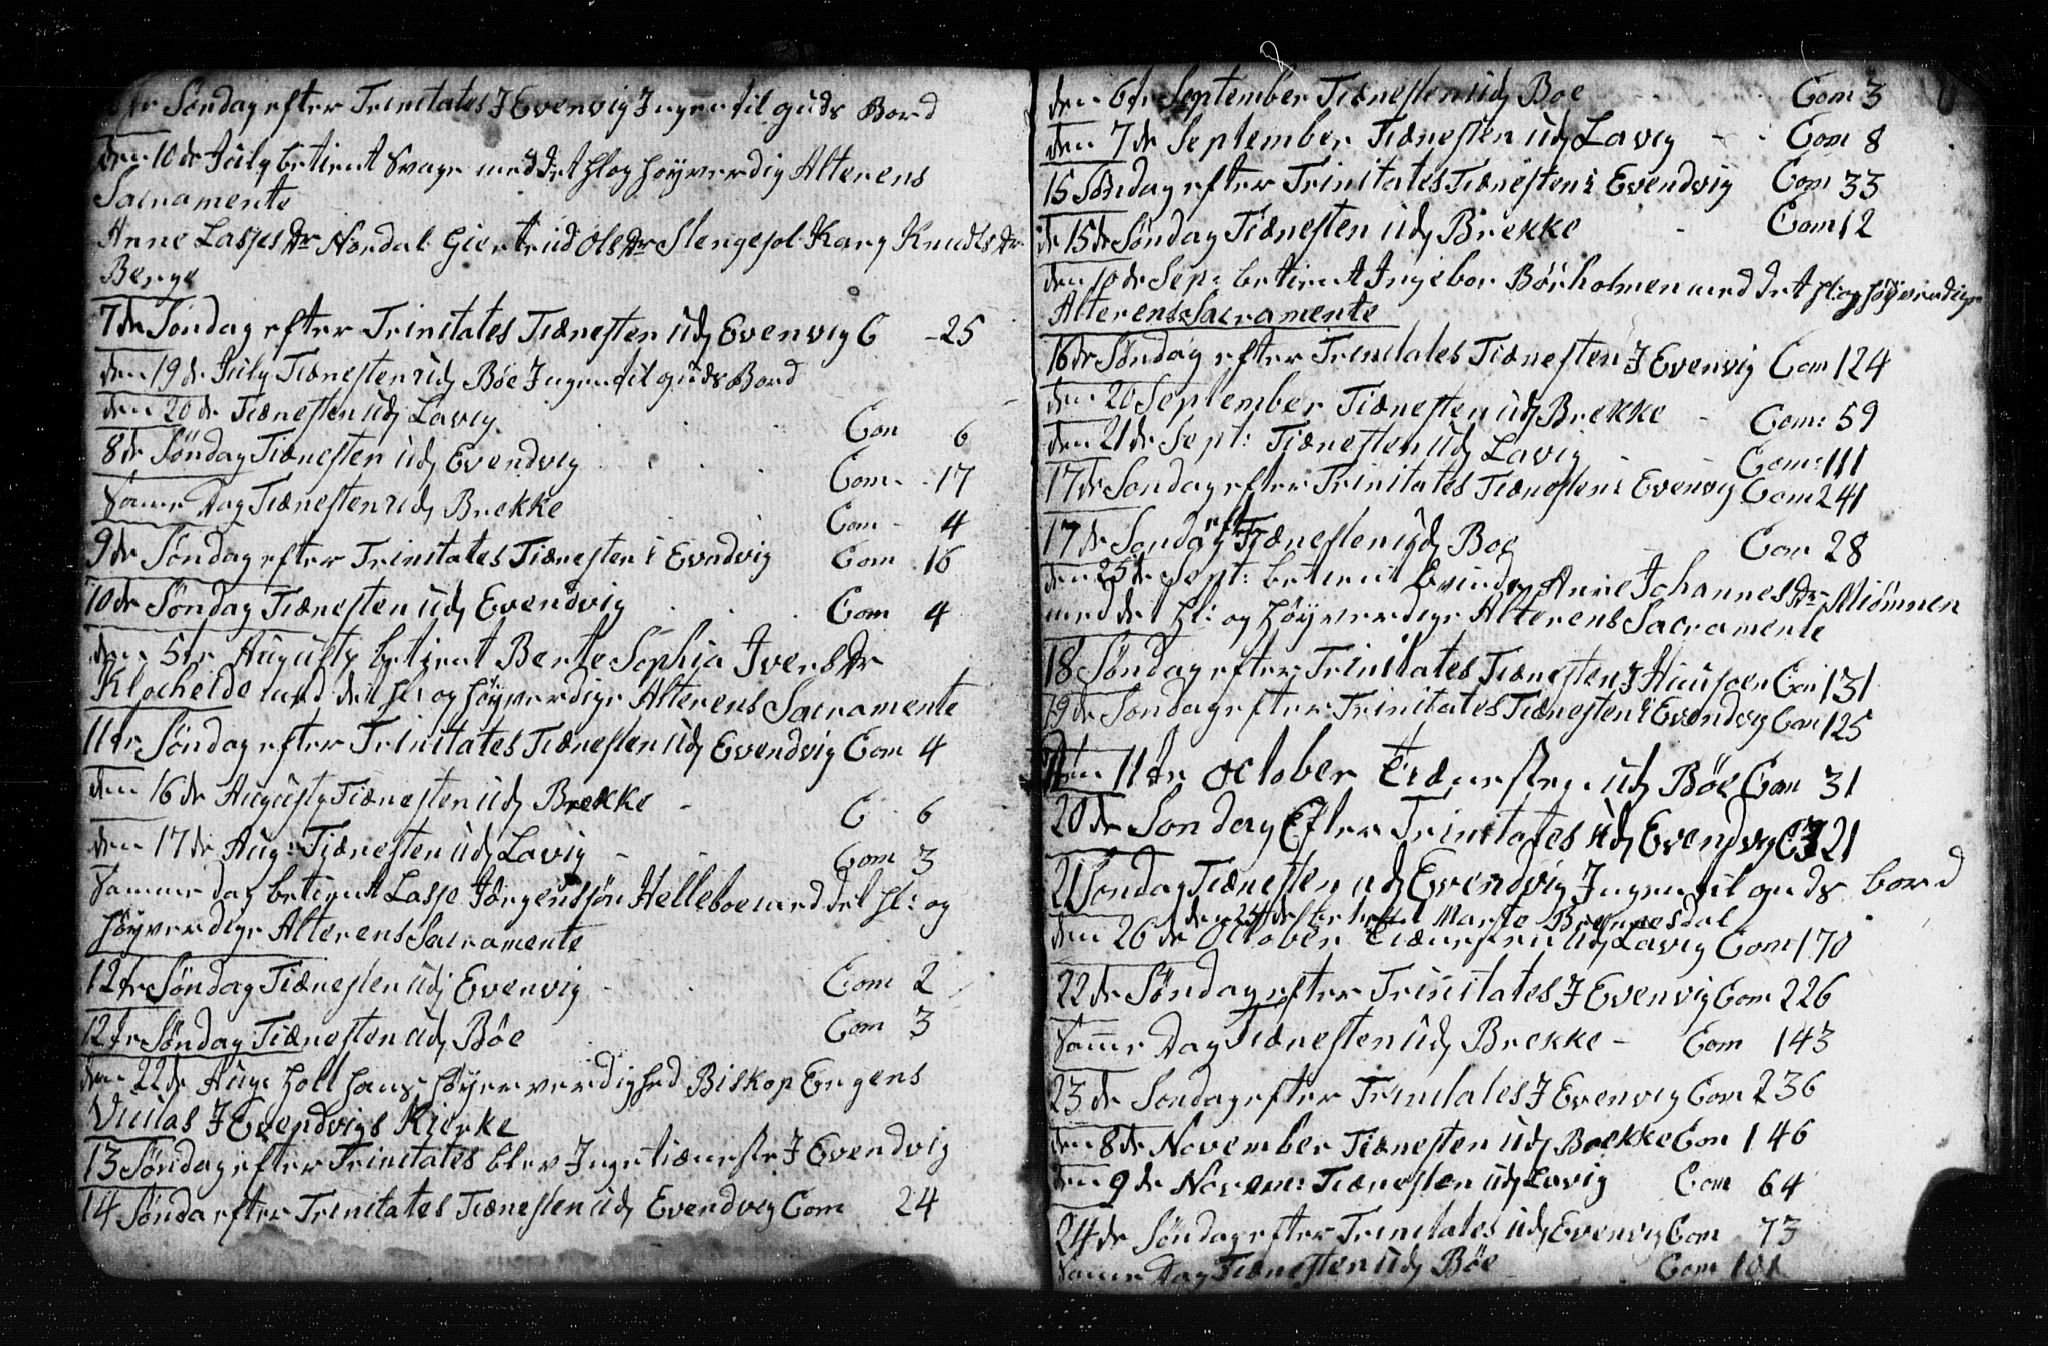 Søndag efter Trinitates J Evenvig Ingen til guds Bord
den 10de July betient Svage med det hl og høyverdig Alterens
Sacramente
Anne Lasses dr Nordal Giertrud Ols dr Slengesol Kary Knudts dr
Berge
7de Søndag efter Trinitates Tiænesten udj Evenvig C - 25
den 19de July Tiænesten udj Bøe Ingen til guds Bord
den 20de Tiænesten udj Lavig Con 6
8de Søndag Tiænesten udj Evendvig Com 17
Samme Dag Tiænesten udj Brekke Com 4
9de Søndag efter Trinitates Tiænesten i Evndvig Com 16
10de Søndag Tiænesten udj Evendvig Com 4
den 5te Augusty betient Berte Sophia Ivers dr
Klocheide med det hl: og høyverdige Alterens Sacramente
11te Søndag efter Trinitates Tiænesten udj Evendvig Com 4
den 16de Augusty Tiænesten udj Brekke C 6
den 17de Aug: Tiænesten udj Lavig Com 3
Samme dag betient Lasse Jørgensøn Helleboe med det hl: og
høyverdige Alterens Sacramente
12te Søndag Tiænesten udj Evenvig Com 2
12te Søndag Tiænesten udj Bøe Com 3
den 22de Aug: holt hans høyerverdighed Biskop Engens
J Evendvigs Kierke
13 Søndag efter Trinitates blev Inge tiæneste J Evendvig
14 Sønda efter Trinitates Tiænesten udj Evendvig Com 24
den 6te September Tiænesten udj Boe Com 3
den 7de September Tiænesten udj Lavig Com 8
15 Søndag efter Trinitates Tiænesten i Evendvig Com 33
d 15de Søndag Tiænesten udj Brekke Com 12
den 10de Sep: betient Ingebor Børholmen med det hl og høyverdige
Alterens Sacramente
16de Søndag efter Trinitates Tiænesten J Evenvig Com 124
den 20 September Tiænesten udj Brekke Com: 59
den 21de Sept: Tiænesten udj Lavig Com: 111
17de Søndag efter Trinitates Tiænesten i Evenvig Com 241
17de Søndag eft Tiænesten udj Boe Con 28
den 25de Sept: betient Anne Johannes dr Miømnen
med det hl: og høyverdige Alterens Sacramente
18 Søndag efter Trinitates Tiænesten J Com 131
19de Søndag efter Trinitates Tiænesten i Evendvig Com 125
den 11te October Tiænesten udj Bøe Com 31
20de Søndag Efter Trinitates udj Evendvig C 321
21 Søndag Tiænesten udj Evendvig Ingen til guds bord
den 25de Marte Brennesdal
den 26de October Tiænesten udj Lavig Com 170
22de Søndag efter Trinitates J Evenvig Com 226
Samme Dag Tiænesten udj Brekke - Com 143
23de Søndag efter Trinitates J Evenvig Com 236
den 8de November Tiænesten udj Brekke Con 146
den 9de Novem: Tiænesten udj Lavig Com 64
24de Søndag efter Trinitates udj Evenvig Com 73
Samme Dag Tiænesten udj Bøe Com 101